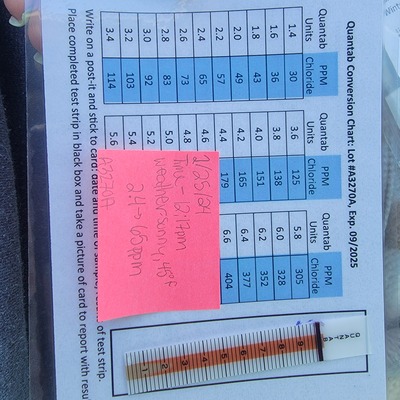 Quantab Conversion Chart: Lot #A3270A, Exp. 09/2025
Quantab Units PPM Chloride
1.4 30
1.6 36
1.8 43
2.0 49
2.2 57
2.4 65
2.6 73
2.8 83
3.0 92
3.2 103
3.4 114
Quantab Units PPM Chloride
3.6 125
3.8 138
4.0 151
4.2 165
4.4 179
4.6
4.8
5.0
5.2
5.4
5.6
Quantab Units PPM Chloride
5.8 305
6.0 328
6.2 352
6.4 377
6.6 404
1/25/24
Time - 12:17pm
weather - sunny, 48°F
2.4 → 65ppm
A3270A
QUANTAB
9
8
7
6
5
4
3
2
1
Write on a post-it and stick to card: date and time of sample, of test strip.
Place completed test strip in black box and take a picture of card to report with resu